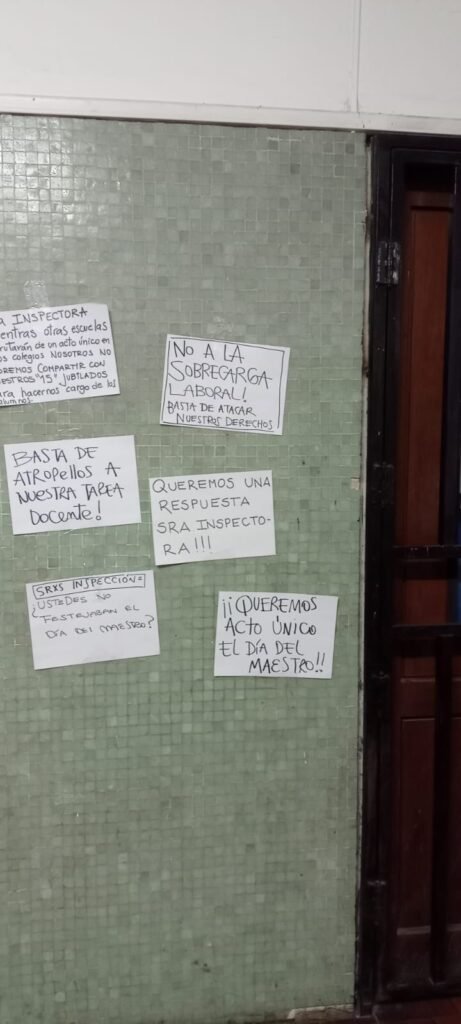 A INSPECTORA
entras otras escuelas
rutarán de un acto único en
os colegios NOSOTROS NO
DREMOS COMPARTIR CON
ESTROS "15" JUBILADOS
ara hacernos cargo de los
alumnos.
NO A LA
SOBREGARGA
LABORAL!
BASTA DE ATACAR
NUESTROS DERECHOS
BASTA DE
ATROPELLOS A
NUESTRA TAREA
DOCENTE!
QUEREMOS UNA
RESPUESTA
SRA INSPECTO-
RA!!!
SRXS INSPECCIÓN=
¿USTEDES NO
FESTEJABAN EL
DÍA DEL MAESTRO?
¡¡QUEREMOS
ACTO ÚNICO
EL DÍA DEL
MAESTRO!!